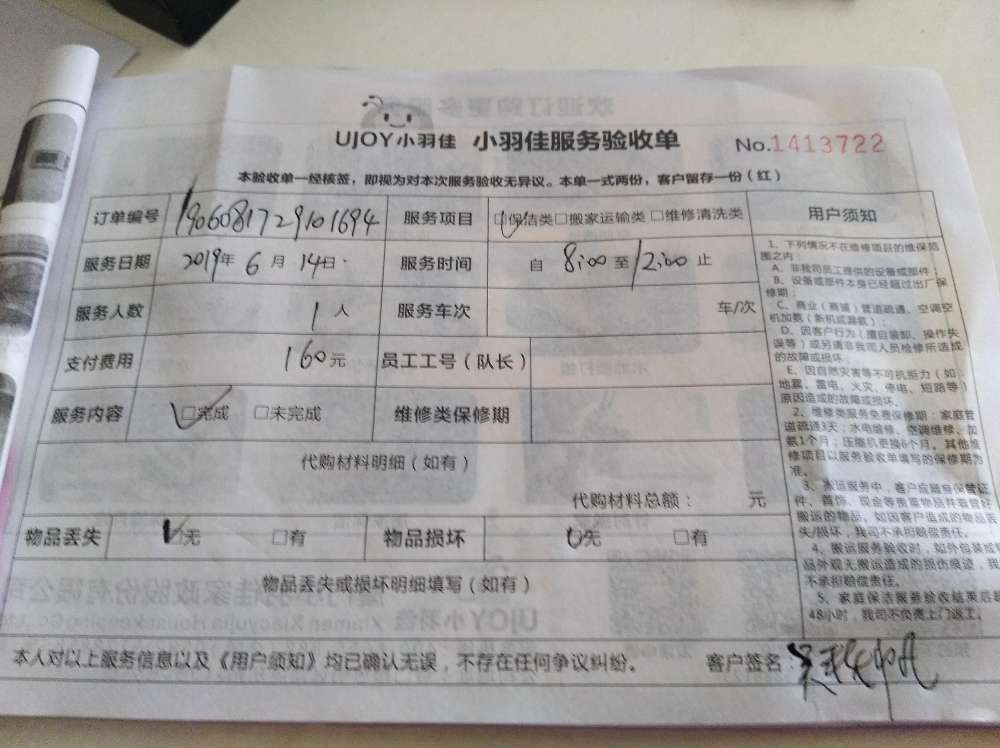 UJOY小羽佳 小羽佳服务验收单 No.1413722
本验收单一经核签，即视为对本次服务验收无异议。本单一式两份，客户留存一份（红）
订单编号 1906081729101694 服务项目 □保洁类□搬家运输类 □维修清洗类
服务日期 2019年 6 月 14日 服务时间 自 8:00 至 12:00 止
服务人数 1 人 服务车次 车/次
支付费用 160元 员工工号（队长）
服务内容 □完成 □未完成 维修类保修期
代购材料明细（如有）
代购材料总额： 元
物品丢失 □无 □有 物品损坏 □无 □有
物品丢失或损坏明细填写（如有）
本人对以上服务信息以及《用户须知》均已确认无误，不存在任何争议纠纷。 客户签名：
用户须知
1、下列情况不在维修项目的维保范
围之内：
A、非我司员工提供的设备或部件；
B、设备或部件本身已经超过出厂保
修期；
C、商业（商铺）管道疏通、空调空
机加氨（新机或漏氨）；
D、因客户行为（擅自装卸、操作失
误等）或另请非我司人员检修所造成
的故障或损坏；
E、因自然灾害等不可抗拒力（如：
地震、雷电、火灾、停电、短路等）
原因造成的故障或损坏。
2、维修类服务免费保修期：家庭管
道疏通3天；水电维修、空调维修、加
氨1个月；压缩机更换6个月。其他维
修项目以服务验收单填写的保修期为
准。
3、搬运服务中，客户应随身保管证
件、首饰、现金等贵重物品并看管好
搬运的物品。如因客户造成的物品丢
失/损坏，我司不承担赔偿责任。
4、搬运服务验收时，如外包装或
品外观无搬运造成的损伤痕迹，我
不承担赔偿责任。
5、家庭保洁服务验收结束后超
48小时，我司不负责上门返工。